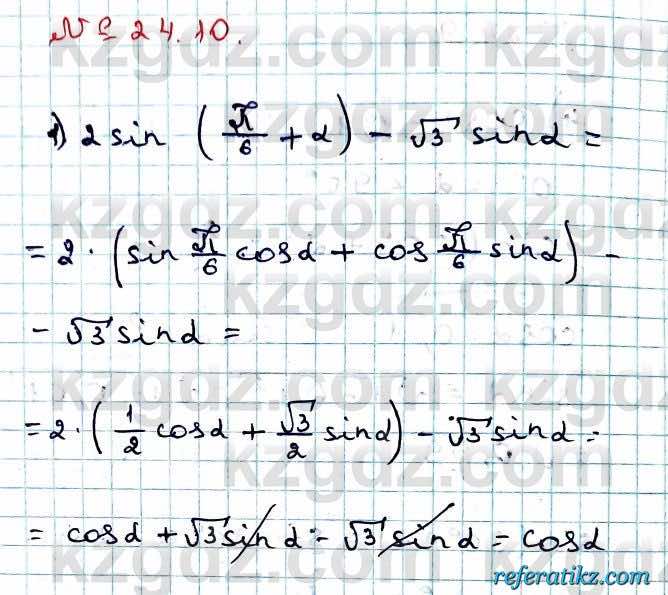 № 24.10.
1) 2 sin (π/6 + α) - √3 sin α =
= 2 · (sin π/6 cos α + cos π/6 sin α) -
- √3 sin α =
= 2 · (1/2 cos α + √3/2 sin α) - √3 sin α =
= cos α + √3 sin α - √3 sin α = cos α
kzgdz.com
referatikz.com